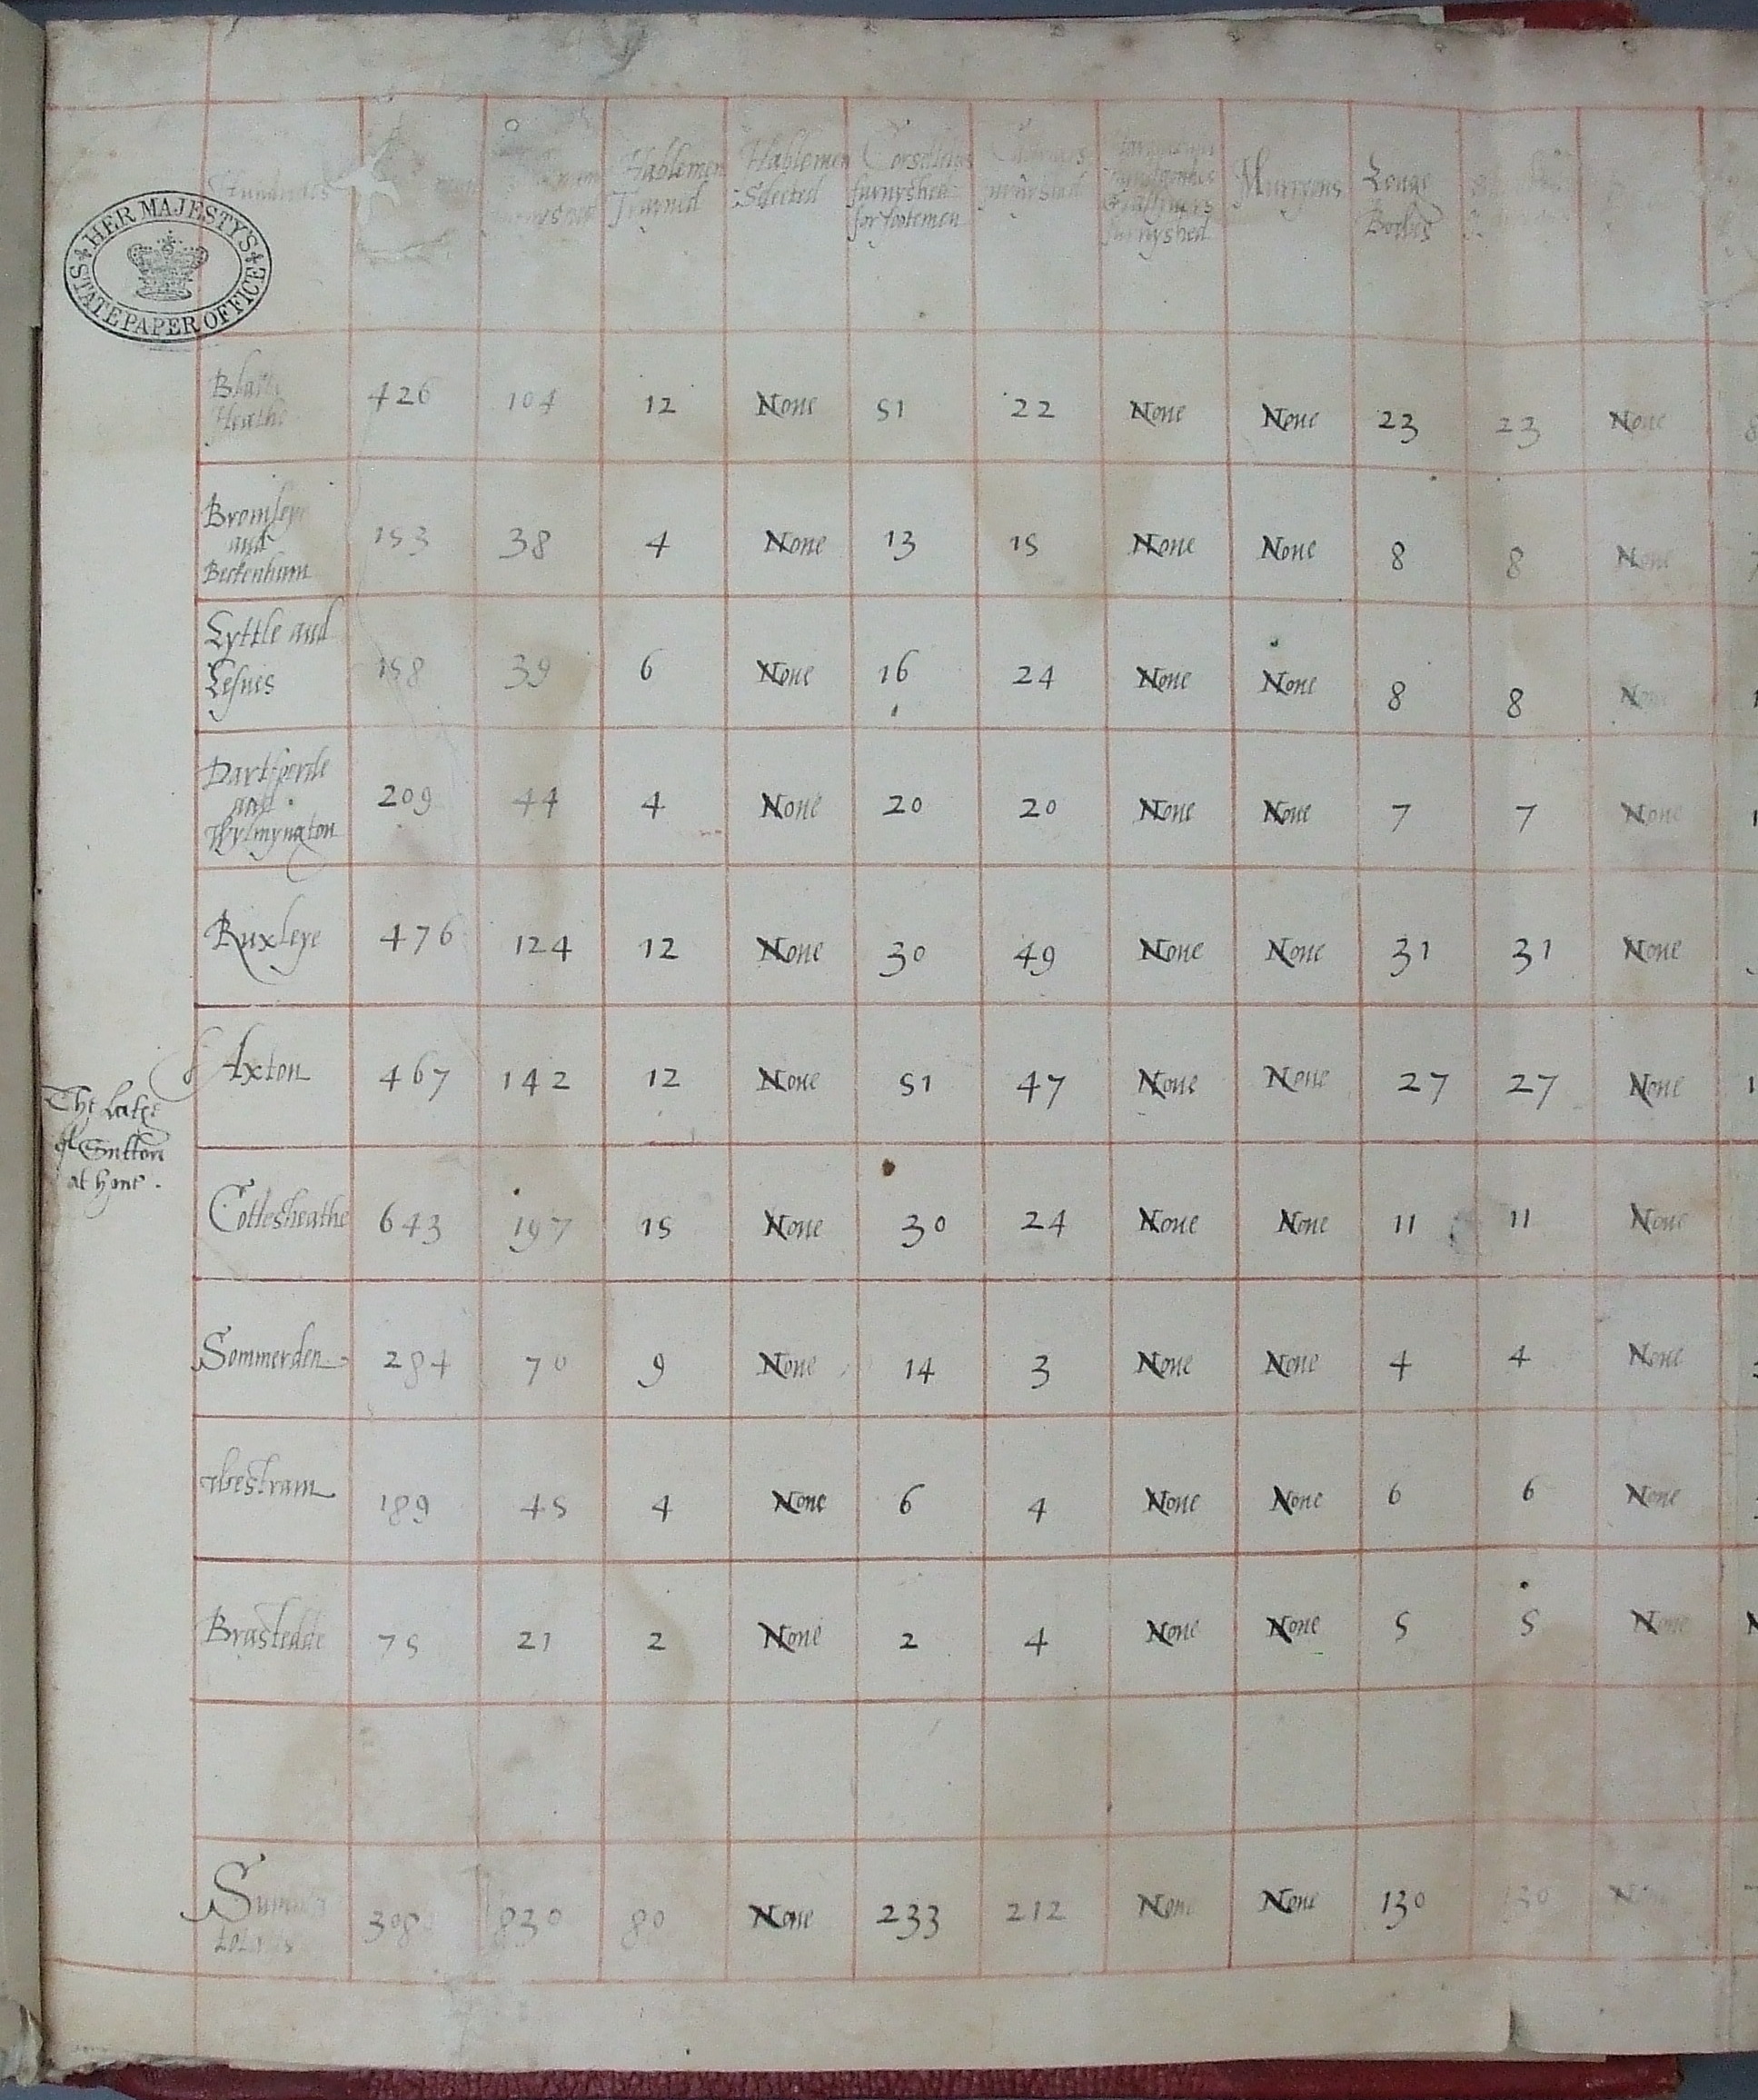 HER MAJESTY'S STATE PAPER OFFICE
Hundredes
Hablemen Trayned
Hablemen Selected
Corselettes furnyshed for footemen
furnyshed
furnyshed
Murryons
Longe Bowes
Blacke Heathe 426 104 12 None 51 22 None None 23 23 None
Bromleye and Beckenham 153 38 4 None 13 15 None None 8 8 None
Lyttle and Lesnes 158 39 6 None 16 24 None None 8 8 None
Dartforde and Wylmyngton 209 44 4 None 20 20 None None 7 7 None
Ruxleye 476 124 12 None 30 49 None None 31 31 None
The Lathe of Sutton at home.
Axton 467 142 12 None 51 47 None None 27 27 None
Cottesheathe 643 197 15 None 30 24 None None 11 11 None
Sommerden 284 70 9 None 14 3 None None 4 4 None
Westram 189 45 4 None 6 4 None None 6 6 None
Brastedde 75 21 2 None 2 4 None None 5 5 None
Summa totalis 3080 830 80 None 233 212 None None 130 130 None